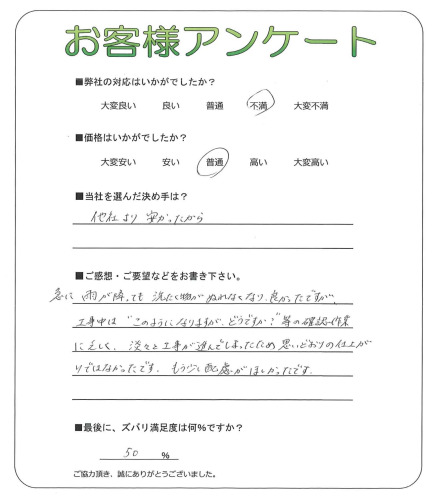 お客様アンケート
■弊社の対応はいかがでしたか？
大変良い 良い 普通 不満 大変不満
■価格はいかがでしたか？
大変安い 安い 普通 高い 大変高い
■当社を選んだ決め手は？
他社より安かったから
■ご感想・ご要望などをお書き下さい。
急に雨が降っても洗たく物がぬれなくなり、良かったですが、
工事中は"このようになりますが、どうですか？"等の確認作業
に乏しく、淡々と工事が進んでしまったため思いどおりの仕上が
りではなかったです。もう少し配慮がほしかったです。
■最後に、ズバリ満足度は何％ですか？
50 ％
ご協力頂き、誠にありがとうございました。